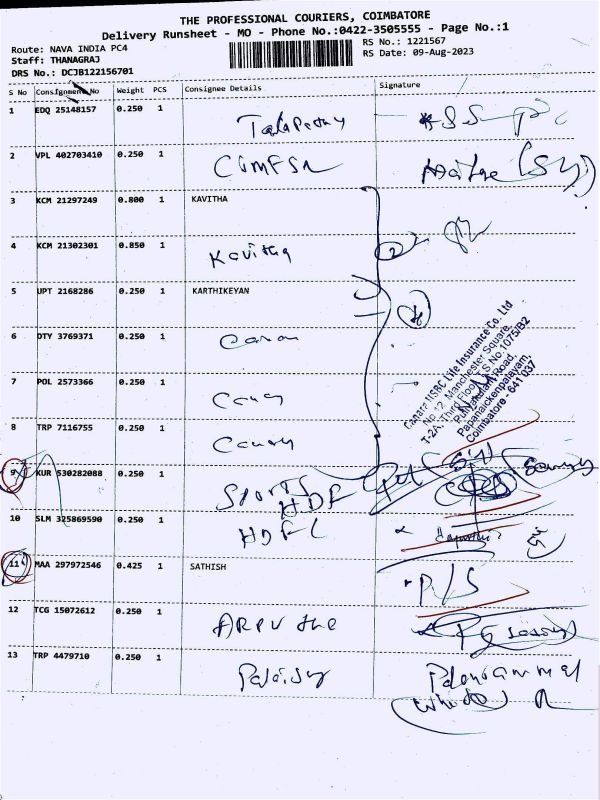 THE PROFESSIONAL COURIERS, COIMBATORE
Delivery Runsheet - MO - Phone No.:0422-3505555 - Page No.:1
Route: NAVA INDIA PC4
Staff: THANAGRAJ
DRS No.: DCJB122156701
RS No.: 1221567
RS Date: 09-Aug-2023
S No Consignment No Weight PCS Consignee Details Signature
1 EDQ 25148157 0.250 1
2 VPL 402703410 0.250 1
3 KCM 21297249 0.800 1 KAVITHA
4 KCM 21302301 0.850 1 Kavitha
5 UPT 2168286 0.250 1 KARTHIKEYAN
6 DTY 3769371 0.250 1
7 POL 2573366 0.250 1
8 TRP 7116755 0.250 1
Canara HSBC Life Insurance Co. Ltd
No. 12, Manchester Square,
T-2A, Third Floor, T.S No. 1075/B2
Puliyakulam Road,
Papanaickenpalayam,
Coimbatore - 641 037
9 KUR 530282088 0.250 1 Sports
HDF
10 SLM 325869590 0.250 1 HDFC
11 MAA 297972546 0.425 1 SATHISH P/S
12 TCG 15072612 0.250 1
13 TRP 4479710 0.250 1